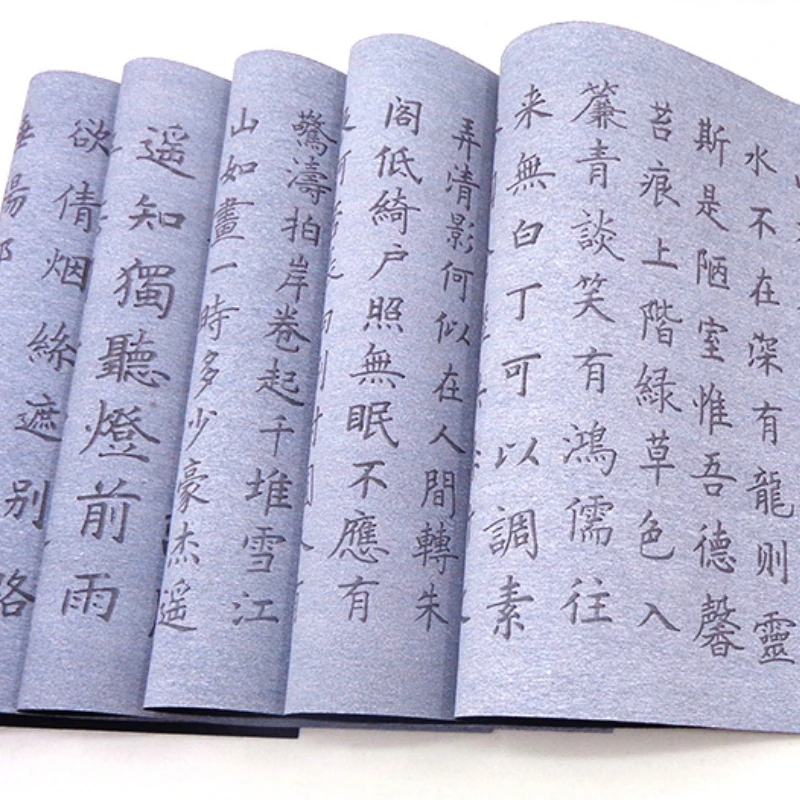 水不在深有龍则靈
斯是陋室惟吾德馨
苔痕上階緑草色入
簾青談笑有鴻儒往
来無白丁可以調素
弄清影何似在人間轉朱
阁低綺户照無眠不應有
驚濤拍岸卷起千堆雪江
山如畫一時多少豪杰遥
遥知獨聽燈前雨
欲倩烟絲遮别路